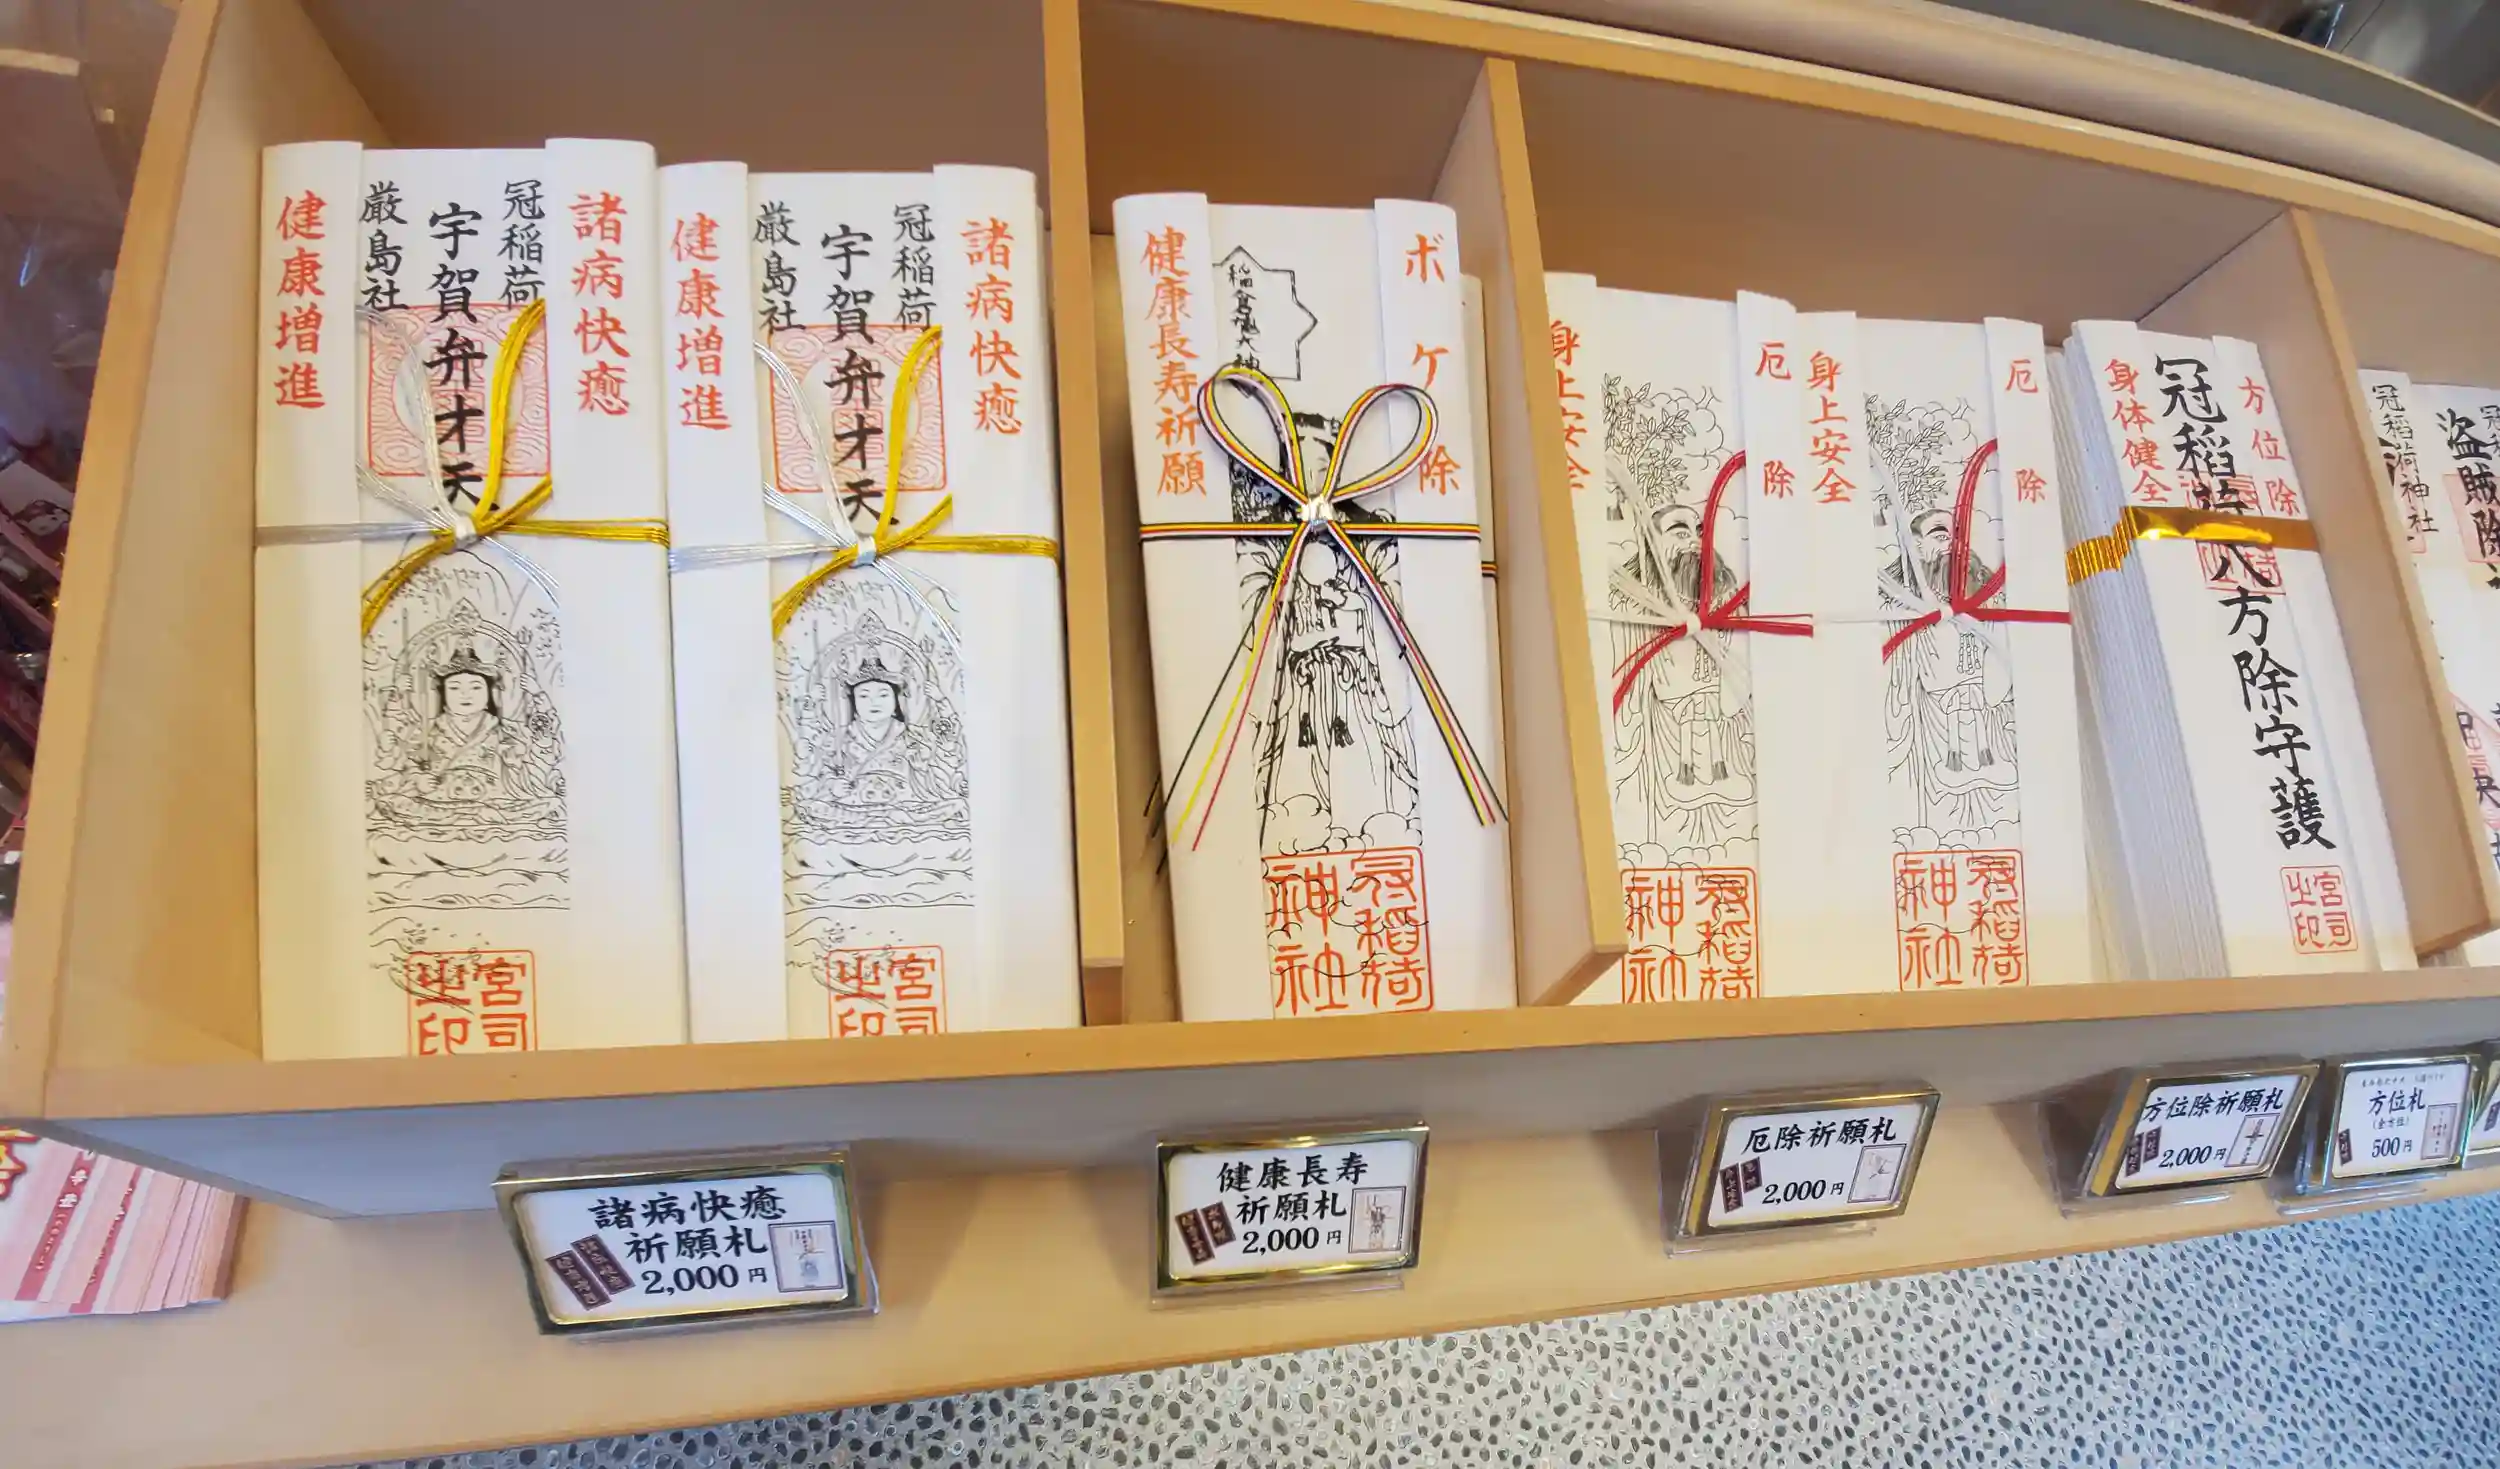 健康増進
厳島社
宇賀弁才天
冠稲荷
諸病快癒
宮司
之印
健康増進
厳島社
宇賀弁才天
冠稲荷
諸病快癒
宮司
之印
健康長寿祈願
稲倉魂大神
ボケ除
冠稲荷
神社
身上安全
厄除
冠稲荷
神社
身上安全
厄除
冠稲荷
神社
身体健全
冠稲荷八方除守護
方位除
宮司
之印
冠稲荷神社
盗賊除
諸病快癒
祈願札
2,000円
健康長寿
祈願札
2,000円
厄除祈願札
2,000円
方位除祈願札
2,000円
方位札
(全方位)
500円